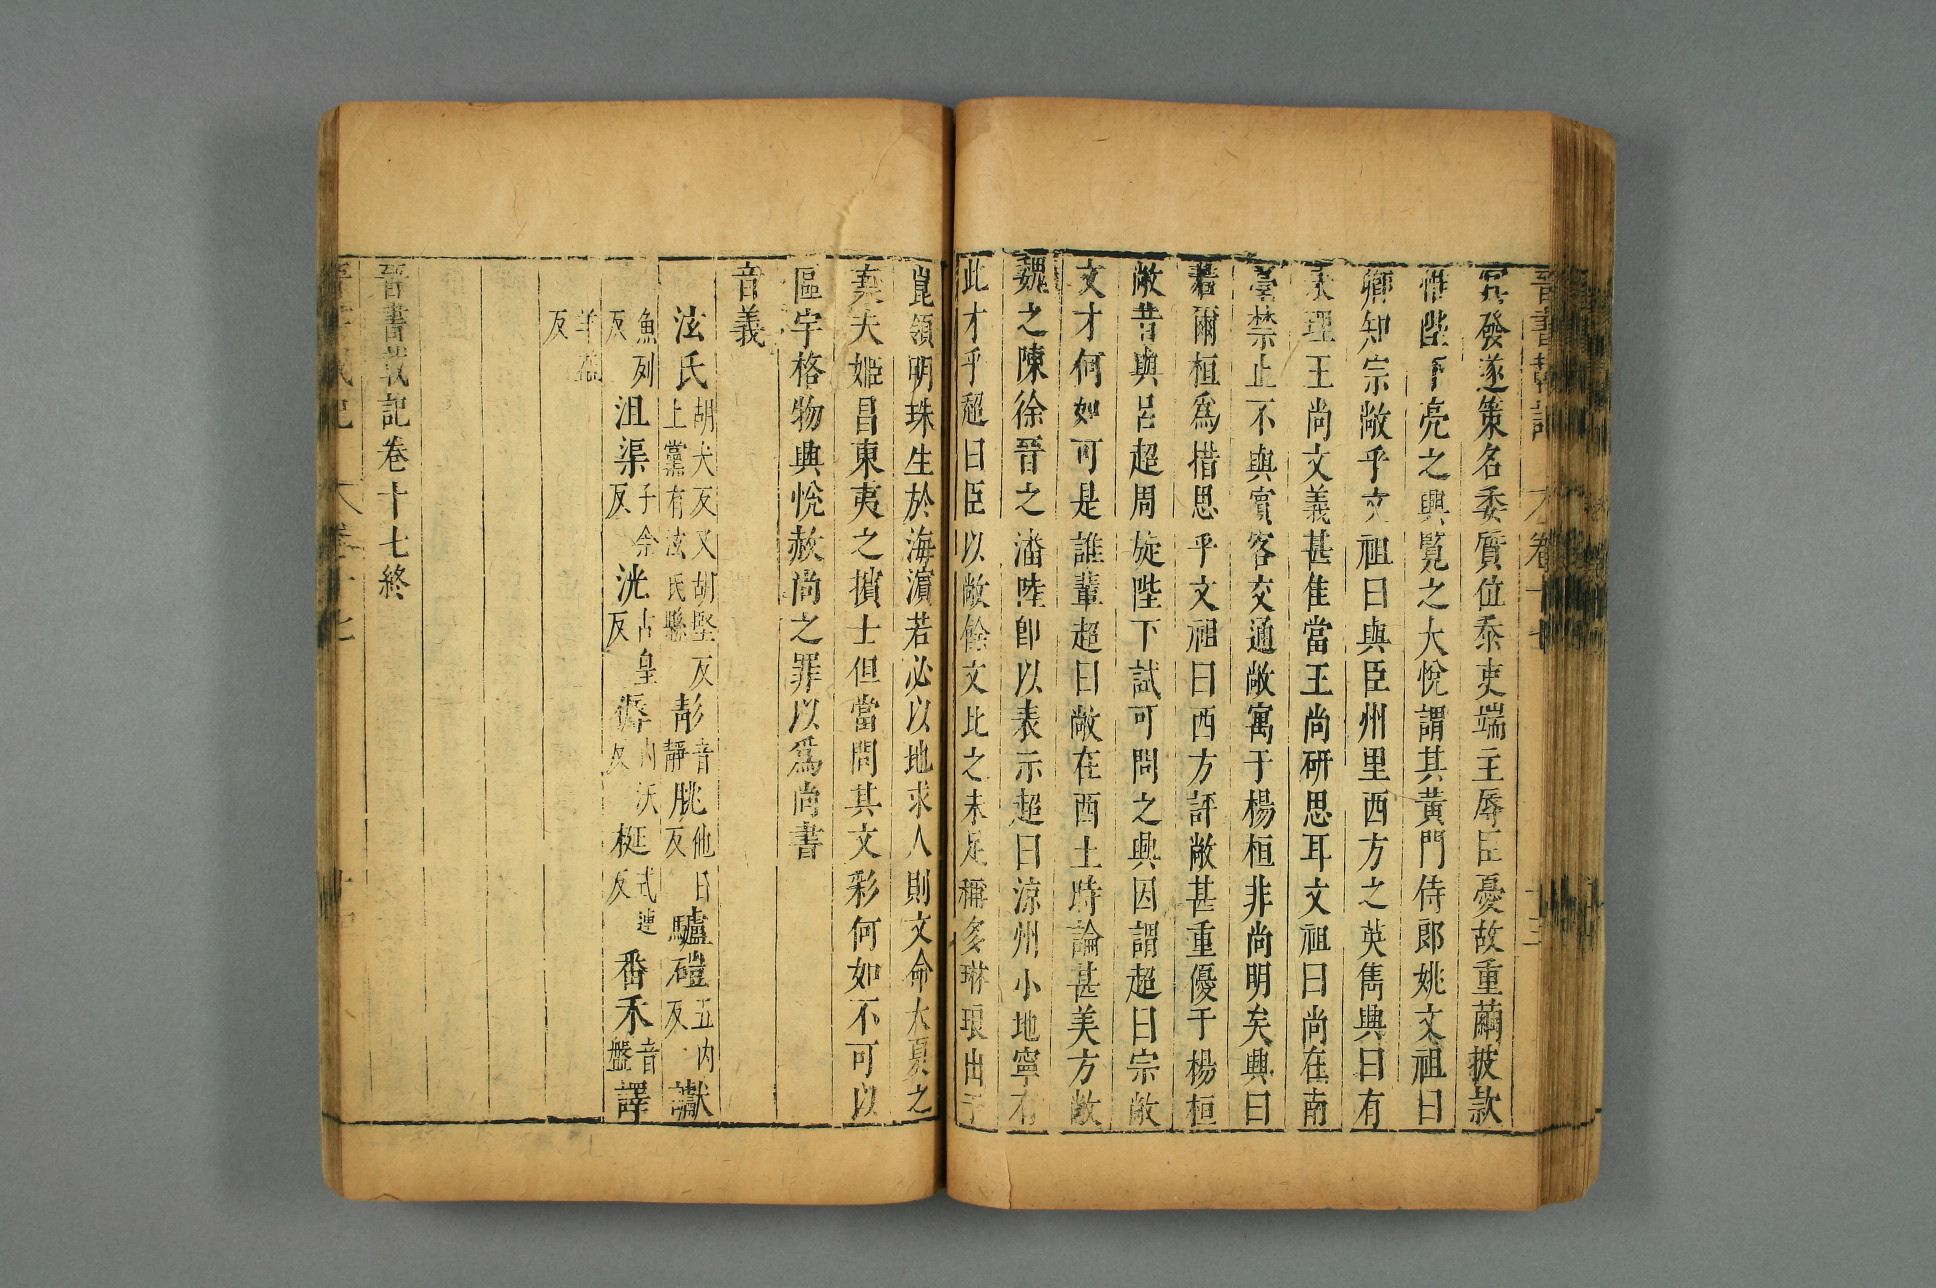 晉書載記 卷十七 十三
冥發遂策名委質位忝吏端主辱臣憂故重繭披款
惟陛下亮之興覽之大悅謂其黃門侍郎姚文祖曰
卿知宗敞乎文祖曰與臣州里西方之英雋興曰有
表理王尚文義甚佳當王尚研思耳文祖曰尚在南
臺禁止不與賓客交通敞寓于楊桓非尚明矣興曰
若爾桓爲措思乎文祖曰西方評敞甚重優于楊桓
敞昔與呂超周旋陛下試可問之興因謂超曰宗敞
文才何如可是誰輩超曰敞在西土時論甚美方敞
魏之陳徐晉之潘陸卽以表示超曰涼州小地寧有
此才乎超曰臣以敞餘文比之未足稱多琳琅出于
崑嶺明珠生於海濱若必以地求人則文命大夏之
棄夫姬昌東夷之擯士但當問其文彩何如不可以
區宇格物興悅赦尚之罪以爲尚書
音義
泫氏胡犬反又胡堅反上黨有泫氏縣彭音靜眺他日反驢磑五內反讞
魚列反沮渠子余反洸古皇反溽內沃反梃式連反番禾音盤譯
羊益反
晉書載記卷十七終